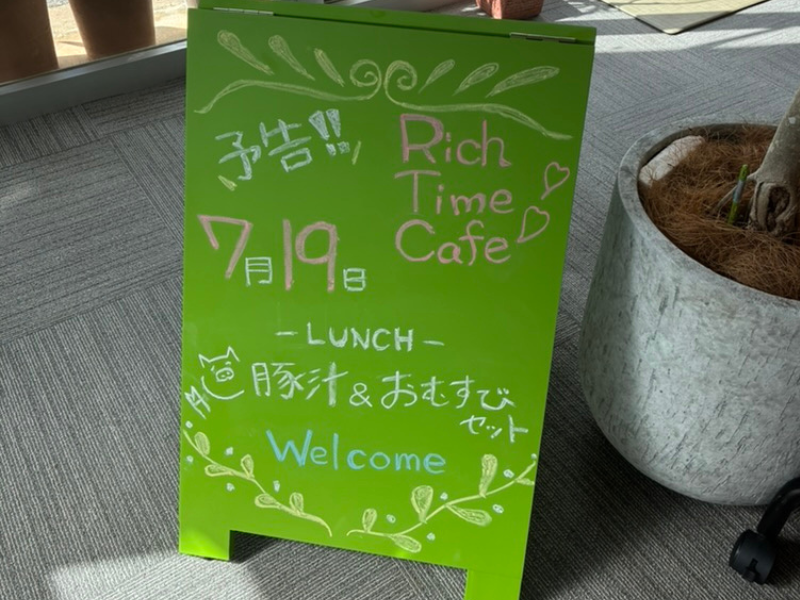 予告!!
Rich
Time
Cafe
7月19日
-LUNCH-
豚汁&おむすび
セット
Welcome